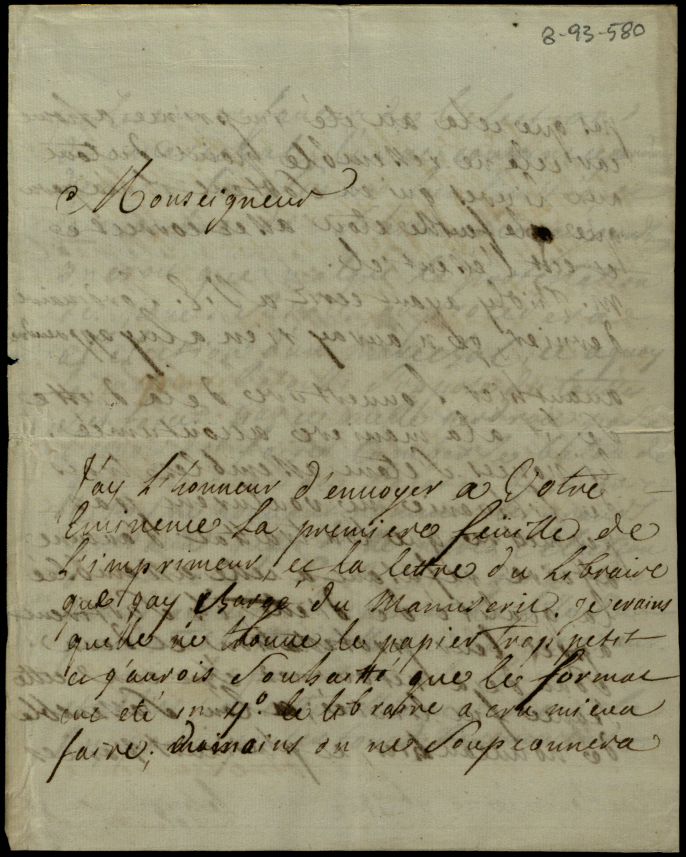 8-93-580
Monseigneur
J'ay L'honneur d'envoyer a Votre
Eminence La premiere feüille de
L'imprimeur et la lettre du Libraire
que j'ay chargé du Manuscrit. je crains
qu'elle ne trouve le papier trop petit
et j'aurois Souhaitté que le format
eut été in 4º. le libraire a cru mieux
faire; du moins on ne Soupconnera